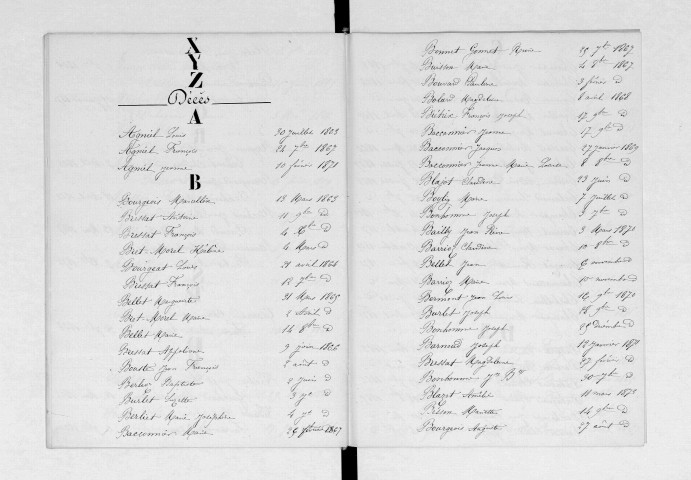 X
Y
Z
Décès
A
Agniel Louis 20 juillet 1863
Agniel François 24 7bre 1867
Agniel 10 févier 1871
B
Bourgeois Marcellin 13 Mars 1863
Bressat Antoine 11 9bre d
Bressat François 4 Xbre d
Bret Morel Hélène 4 Mars d
Bourgeat Louis 21 avril 1864
Bressat François 12 d
Bellet Marguerite 21 Mars 1865
Bret Morel Marie 2 Avril d
Bellet Marie 14 8bre d
Bressat Appolonie 9 juin 1866
Jean François 2 août d
Berlier Baptiste 2 juin d
Burlet 3 d
Berliet Marie Joséphine 4 d
Bacconnier Marie 26 février 1867
Bonnet Gonnet Marie 25 7bre 1867
Buisson Marie 4 8bre 1867
Bouvard 3 février d
Bolard Magdeleine 8 avril 1868
François Joseph 17 9bre d
Bacconnier 17 9bre d
Bacconnier Jacques 27 janvier 1869
Bacconnier Jeanne Marie 8 8bre d
Blajot Claudine 23 juin d
Marie 7 juillet d
Bonhomme Joseph 3 7bre d
Bailly Jean 3 Mars 1870
Barrioz Claudine 10 8bre d
Bellet Jean novembre d
Barrioz Marie 12 novembre d
Bermont Jean Louis 24 1870
Burlet Joseph 18 9bre d
Bonhomme Joseph 28 décembre d
Joseph 12 janvier 1871
Bressat Magdeleine 27 février d
Bonhomme 30 d
Blazot Amélie 11 mars 1873
Brison Mariette 14 9bre d
Bourgeois Auguste 27 août d